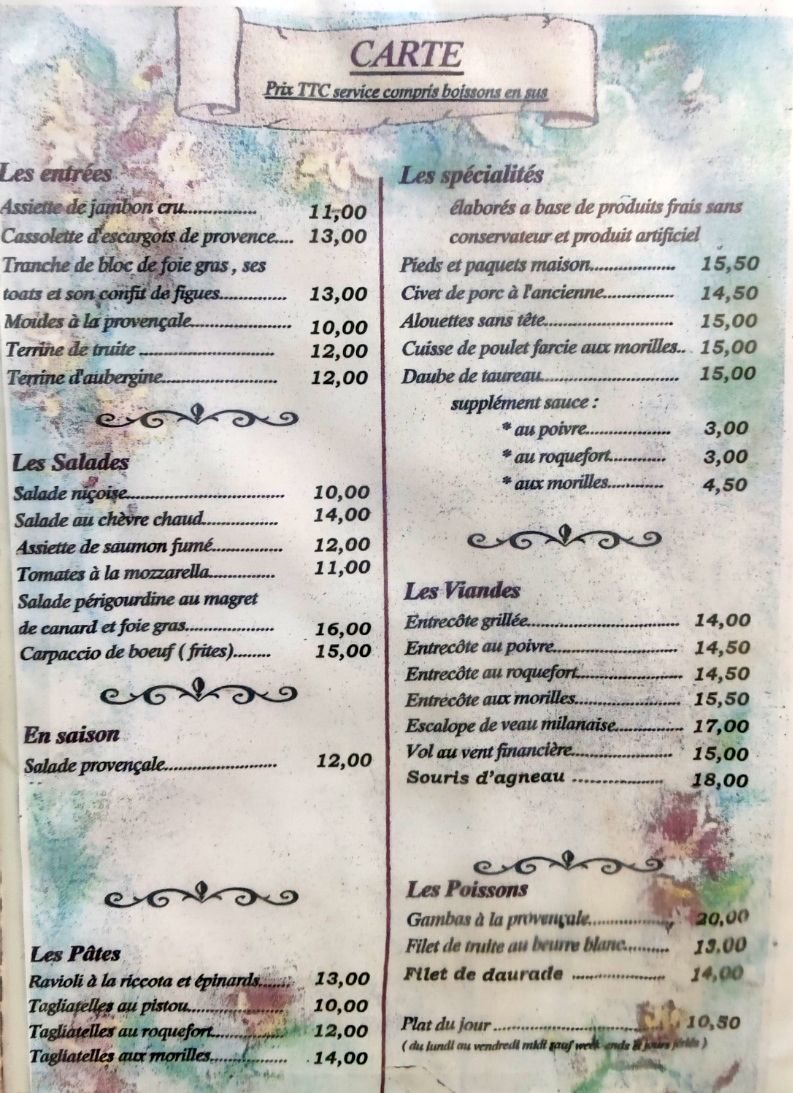 CARTE
Prix TTC service compris boissons en sus
Les entrées
Assiette de jambon cru............... 11,00
Cassolette d'escargots de provence.... 13,00
Tranche de bloc de foie gras , ses
toats et son confit de figues............. 13,00
Moules à la provençale..................... 10,00
Terrine de truite ........................... 12,00
Terrine d'aubergine....................... 12,00
Les Salades
Salade niçoise................................ 10,00
Salade au chèvre chaud............... 14,00
Assiette de saumon fumé.............. 12,00
Tomates à la mozzarella............. 11,00
Salade périgourdine au magret
de canard et foie gras................. 16,00
Carpaccio de boeuf ( frites)........ 15,00
En saison
Salade provençale....................... 12,00
Les Pâtes
Ravioli à la riccota et épinards....... 13,00
Tagliatelles au pistou................... 10,00
Tagliatelles au roquefort.............. 12,00
Tagliatelles aux morilles............... 14,00
Les spécialités
élaborés a base de produits frais sans
conservateur et produit artificiel
Pieds et paquets maison................. 15,50
Civet de porc à l'ancienne.............. 14,50
Alouettes sans tête........................ 15,00
Cuisse de poulet farcie aux morilles.. 15,00
Daube de taureau........................... 15,00
supplément sauce :
* au poivre................. 3,00
* au roquefort........... 3,00
* aux morilles........... 4,50
Les Viandes
Entrecôte grillée.............................. 14,00
Entrecôte au poivre......................... 14,50
Entrecôte au roquefort.................... 14,50
Entrecôte aux morilles.................... 15,50
Escalope de veau milanaise............. 17,00
Vol au vent financière.................... 15,00
Souris d'agneau .................. 18,00
Les Poissons
Gambas à la provençale................. 20,00
Filet de truite au beurre blanc......... 13,00
Filet de daurade .................. 14,00
Plat du jour ................................. 10,50
( du lundi au vendredi midi sauf week ends & jours fériés )